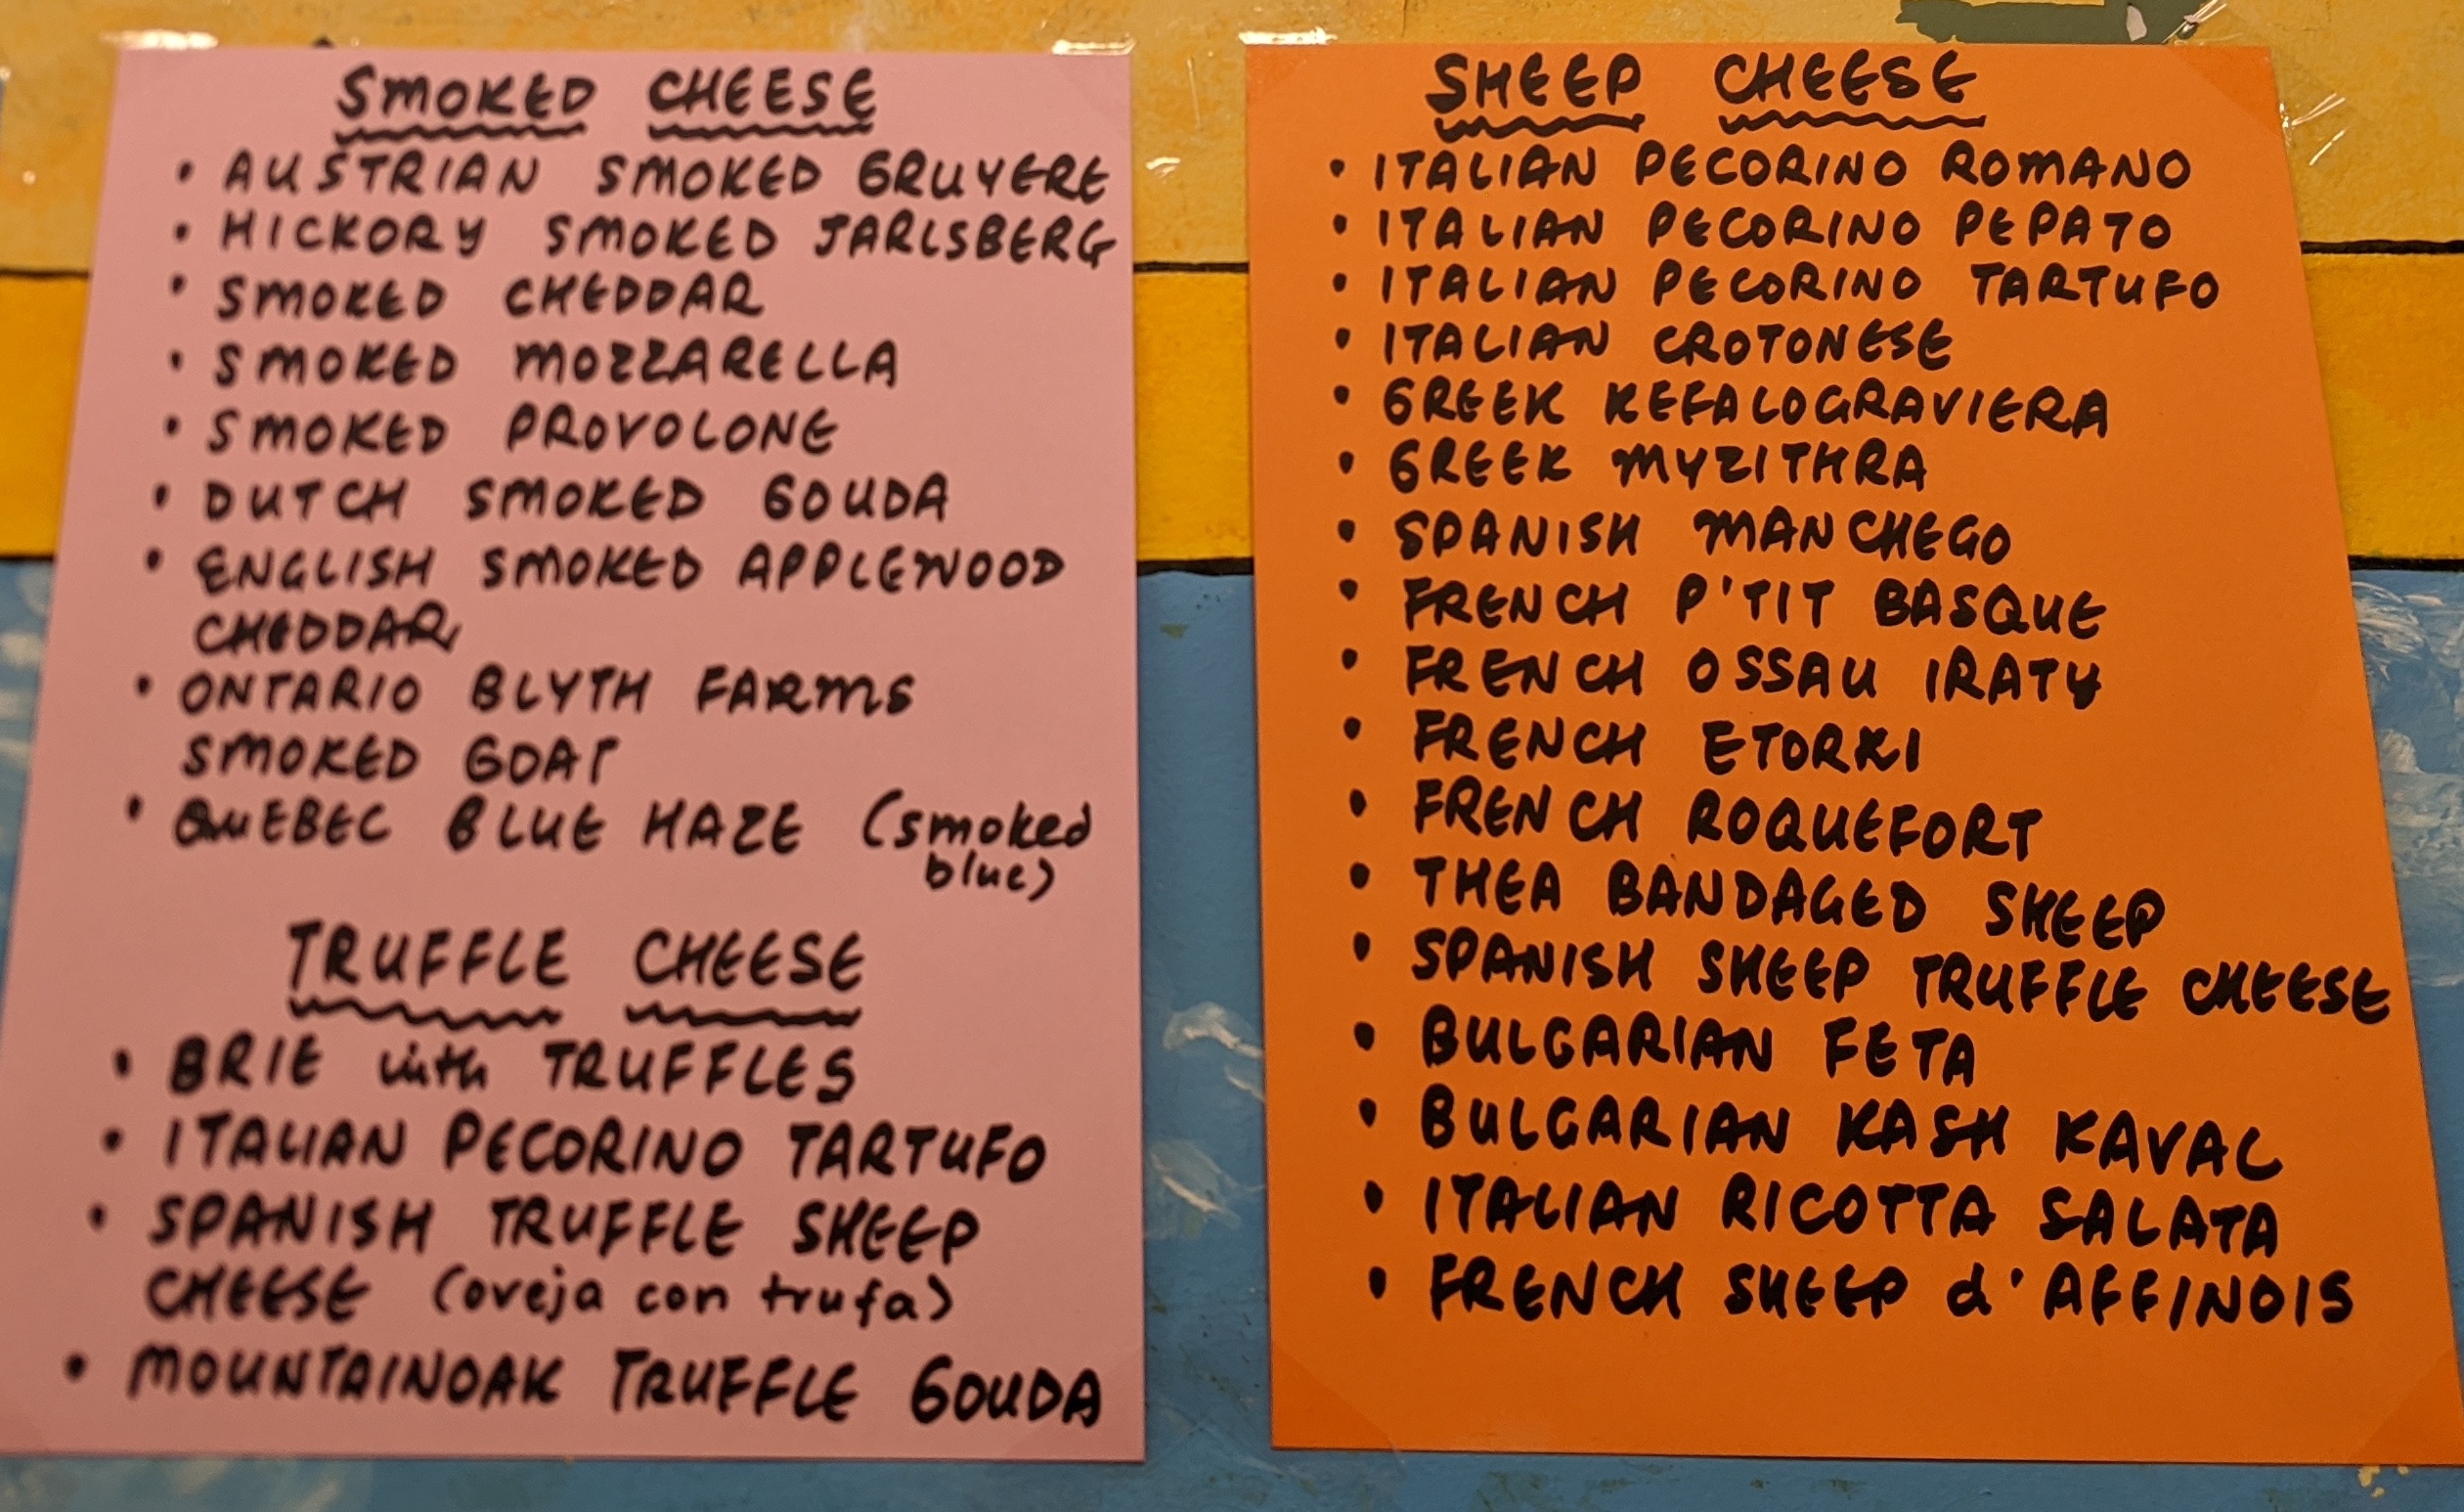 SMOKED CHEESE
• AUSTRIAN SMOKED GRUYERE
• HICKORY SMOKED JARLSBERG
• SMOKED CHEDDAR
• SMOKED MOZZARELLA
• SMOKED PROVOLONE
• DUTCH SMOKED GOUDA
• ENGLISH SMOKED APPLEWOOD
CHEDDAR
• ONTARIO BLYTH FARMS
SMOKED GOAT
• QUEBEC BLUE HAZE (smoked
blue)
TRUFFLE CHEESE
• BRIE with TRUFFLES
• ITALIAN PECORINO TARTUFO
• SPANISH TRUFFLE SHEEP
CHEESE (oveja con trufa)
• MOUNTAINOAK TRUFFLE GOUDA
SHEEP CHEESE
• ITALIAN PECORINO ROMANO
• ITALIAN PECORINO PEPATO
• ITALIAN PECORINO TARTUFO
• ITALIAN CROTONESE
• GREEK KEFALOGRAVIERA
• GREEK MYZITHRA
• SPANISH MANCHEGO
• FRENCH P'TIT BASQUE
• FRENCH OSSAU IRATY
• FRENCH ETORKI
• FRENCH ROQUEFORT
• THEA BANDAGED SHEEP
• SPANISH SHEEP TRUFFLE CHEESE
• BULGARIAN FETA
• BULGARIAN KASH KAVAL
• ITALIAN RICOTTA SALATA
• FRENCH SHEEP d'AFFINOIS